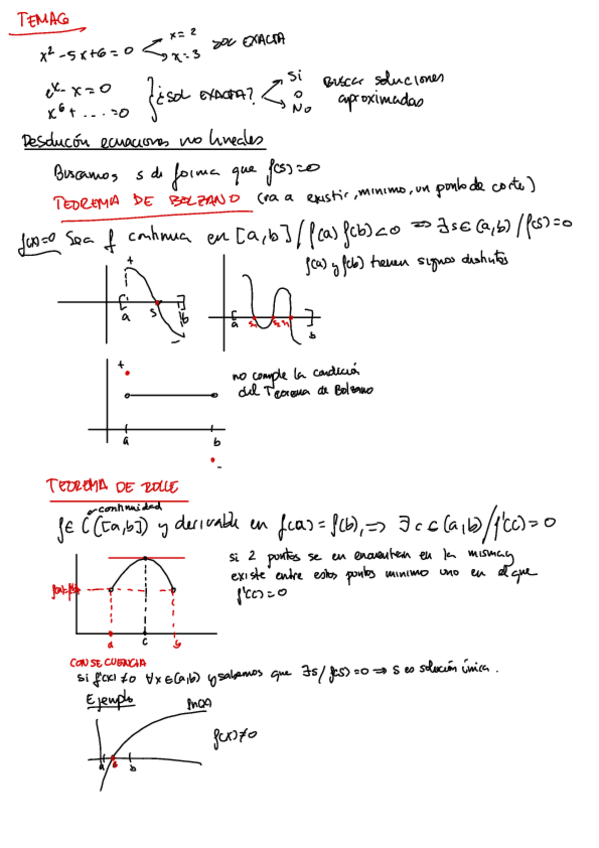 TEMA6
x² - 5x + 6 = 0 x = 2 x = 3 SOL EXACTA
eˣ - x = 0
x⁶ + .... = 0
¿SOL EXACTA? Si o No
Buscar soluciones aproximadas
Resolución ecuaciones no lineales
Buscamos s de forma que f(s)=0
TEOREMA DE BOLZANO (va a existir, minimo, un punto de corte)
f(x)=0 Sea f continua en [a,b] / f(a) f(b) < 0 ⇒ ∃ s ∈ (a,b) / f(s) = 0
f(a) y f(b) tienen signos distintos
+ a s b -
a s₁ s₂ s₃ b
+ a b -
no cumple la condición
del Teorema de Bolzano
TEOREMA DE ROLLE
continuidad
f ∈ C([a,b]) y derivable en f(a) = f(b), ⇒ ∃ c ∈ (a,b) / f'(c) = 0
si 2 puntos se en encuentran en la misma y
existe entre estos puntos minimo uno en el que
f'(c) = 0
f(a)=f(b)
a c b
CONSECUENCIA
si f'(x) ≠ 0 ∀x ∈ (a,b) y sabemos que ∃ s / f(s) = 0 ⇒ s es solución única.
Ejemplo
ln(x)
f'(x) ≠ 0
a s b